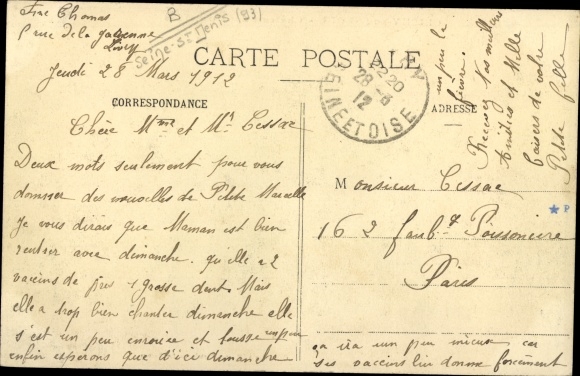 B
Seine-St Denis (93)
Fre Thomas
rue de la
Livry
CARTE POSTALE
Jeudi 28 Mars 1912
CORRESPONDANCE
ADRESSE
SINE ET OISE
28 -3
12
Chère Mme et Mr Cessac
Deux mots seulement pour vous
donner des nouvelles de Petite Marcelle
Je vous dirais que Maman est bien
rentrer avec dimanche. qu'elle a 2
vaccins de pris 1 grosse dent. Mais
elle a trop bien chanter dimanche elle
s'est un peu enrouée et tousse un peu
enfin esperons que d'ici dimanche
ça ira un peu mieux car
ses vaccins lui donne forcément
un peu de
fièvre.
Recevez nos meilleures
Amitiés et Mille
baisers de votre
Petite fille
Monsieur Cessac
162 faubg Poissonière
Paris
P